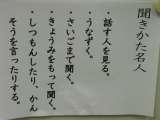 聞きかた名人
・話す人を見る。
・うなずく。
・さいごまで聞く。
・きょうみをもって聞く。
・しつもんしたり、かん
そうを言ったりする。